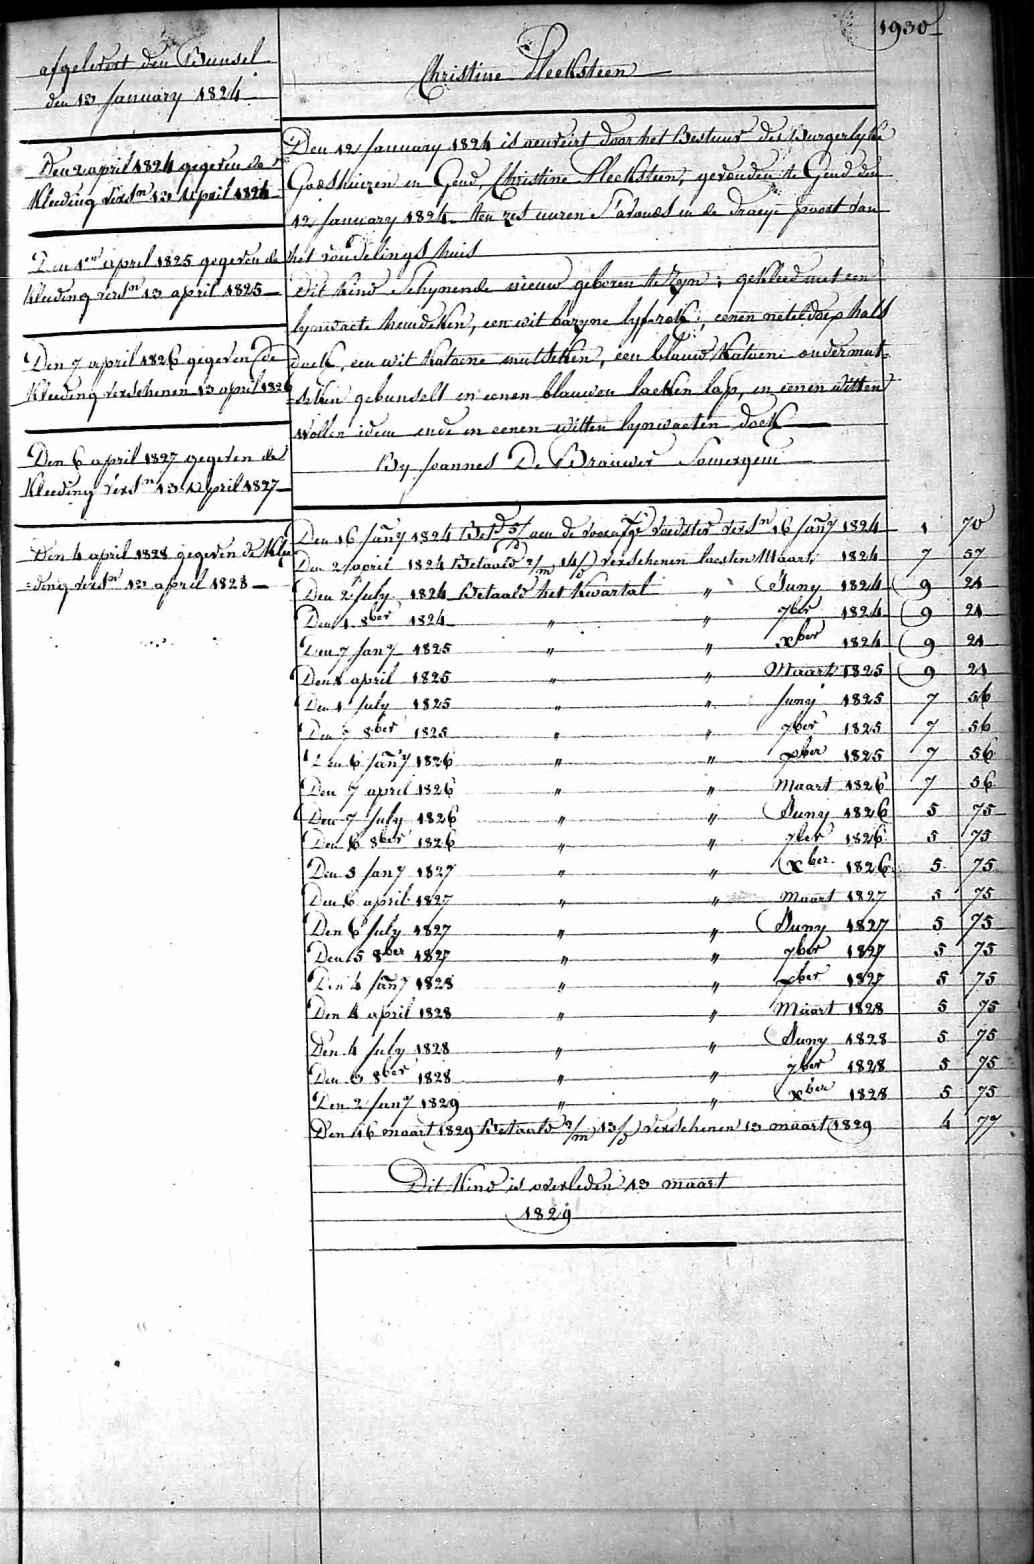 1930
afgelevert den Bunsel
den 13 January 1824
Den 2 april 1824 gegeven de
Kleeding versn 13 April 1824
Den 1en april 1825 gegeven de
Kleeding versn 13 april 1825
Den 7 april 1826 gegeven de
Kleeding verschenen 13 april 1826
Den 6 april 1827 gegeven de
Kleeding versn 13 April 1827
Den 4 april 1828 gegeven de Klee
=ding versn 13 april 1828
Christine Sleeksteen
Den 12 January 1824 is aenveirt door het Bestuur der Burgerlyke
Godshuizen en Gend, Christine Sleeksteen, gevonden te Gend den
12 january 1824 ten zes uuren S'avonds in de draeye poort van
het vondelings huis
Dit kind Schynende nieuw geboren te Zyn; gekleed met een
lynwaete hemdeken, een wit bazyne lyfrok, eenen neteldoex hals
doek, een wit katoene mutseken, een blauw katoene ondermut
=seken gebunselt in eenen blauwen laeken lap, en eenen witten
wollen idem ende in eenen witten lynwaeten doek
By Joannes De Brauwer Somergem
Den 16 Jany 1824 aen de voedster versn 16 Jany 1824 1 70
Den 2 april 1824 Betaald 2/m 14/d verschenen laesten Maart 1824 7 57
Den 2 July 1824 Betaald het kwartal " Juny 1824 9 21
Den 1 8ber 1824 " " 7ber 1824 9 21
Den 7 Jany 1825 " " xber 1824 9 21
Den 1 april 1825 " " Maart 1825 9 21
Den 1 July 1825 " " Juny 1825 7 56
Den 7 8ber 1825 " " 7ber 1825 7 56
Den 6 Jany 1826 " " xber 1825 7 56
Den 7 april 1826 " " Maart 1826 7 56
Den 7 July 1826 " " Juny 1826 5 75
Den 6 8ber 1826 " " 7ber 1826 5 75
Den 5 Jany 1827 " " xber 1826 5 75
Den 6 april 1827 " " Maart 1827 5 75
Den 6 July 1827 " " Juny 1827 5 75
Den 5 8ber 1827 " " 7ber 1827 5 75
Den 4 Jany 1828 " " xber 1827 5 75
Den 4 april 1828 " " Maart 1828 5 75
Den 4 July 1828 " " Juny 1828 5 75
Den 3 8ber 1828 " " 7ber 1828 5 75
Den 2 Jany 1829 " " xber 1828 5 75
Den 16 maart 1829 Betaald 2/m 13/d verschenen 13 maart 1829 4 77
Dit kind is overleden 13 maart
1829